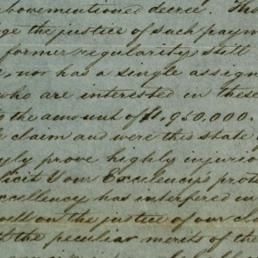 bovementioned decree. The
ge the justice of such paym
former regularity, still
, nor has a single assign
who are interested in these
the amount of $1,950,000.
claim and were this state of
ly prove highly injurio
licit Your Excellency's prot
xcellency has interfered in
well on the justice of our cla
the peculiar merits of the